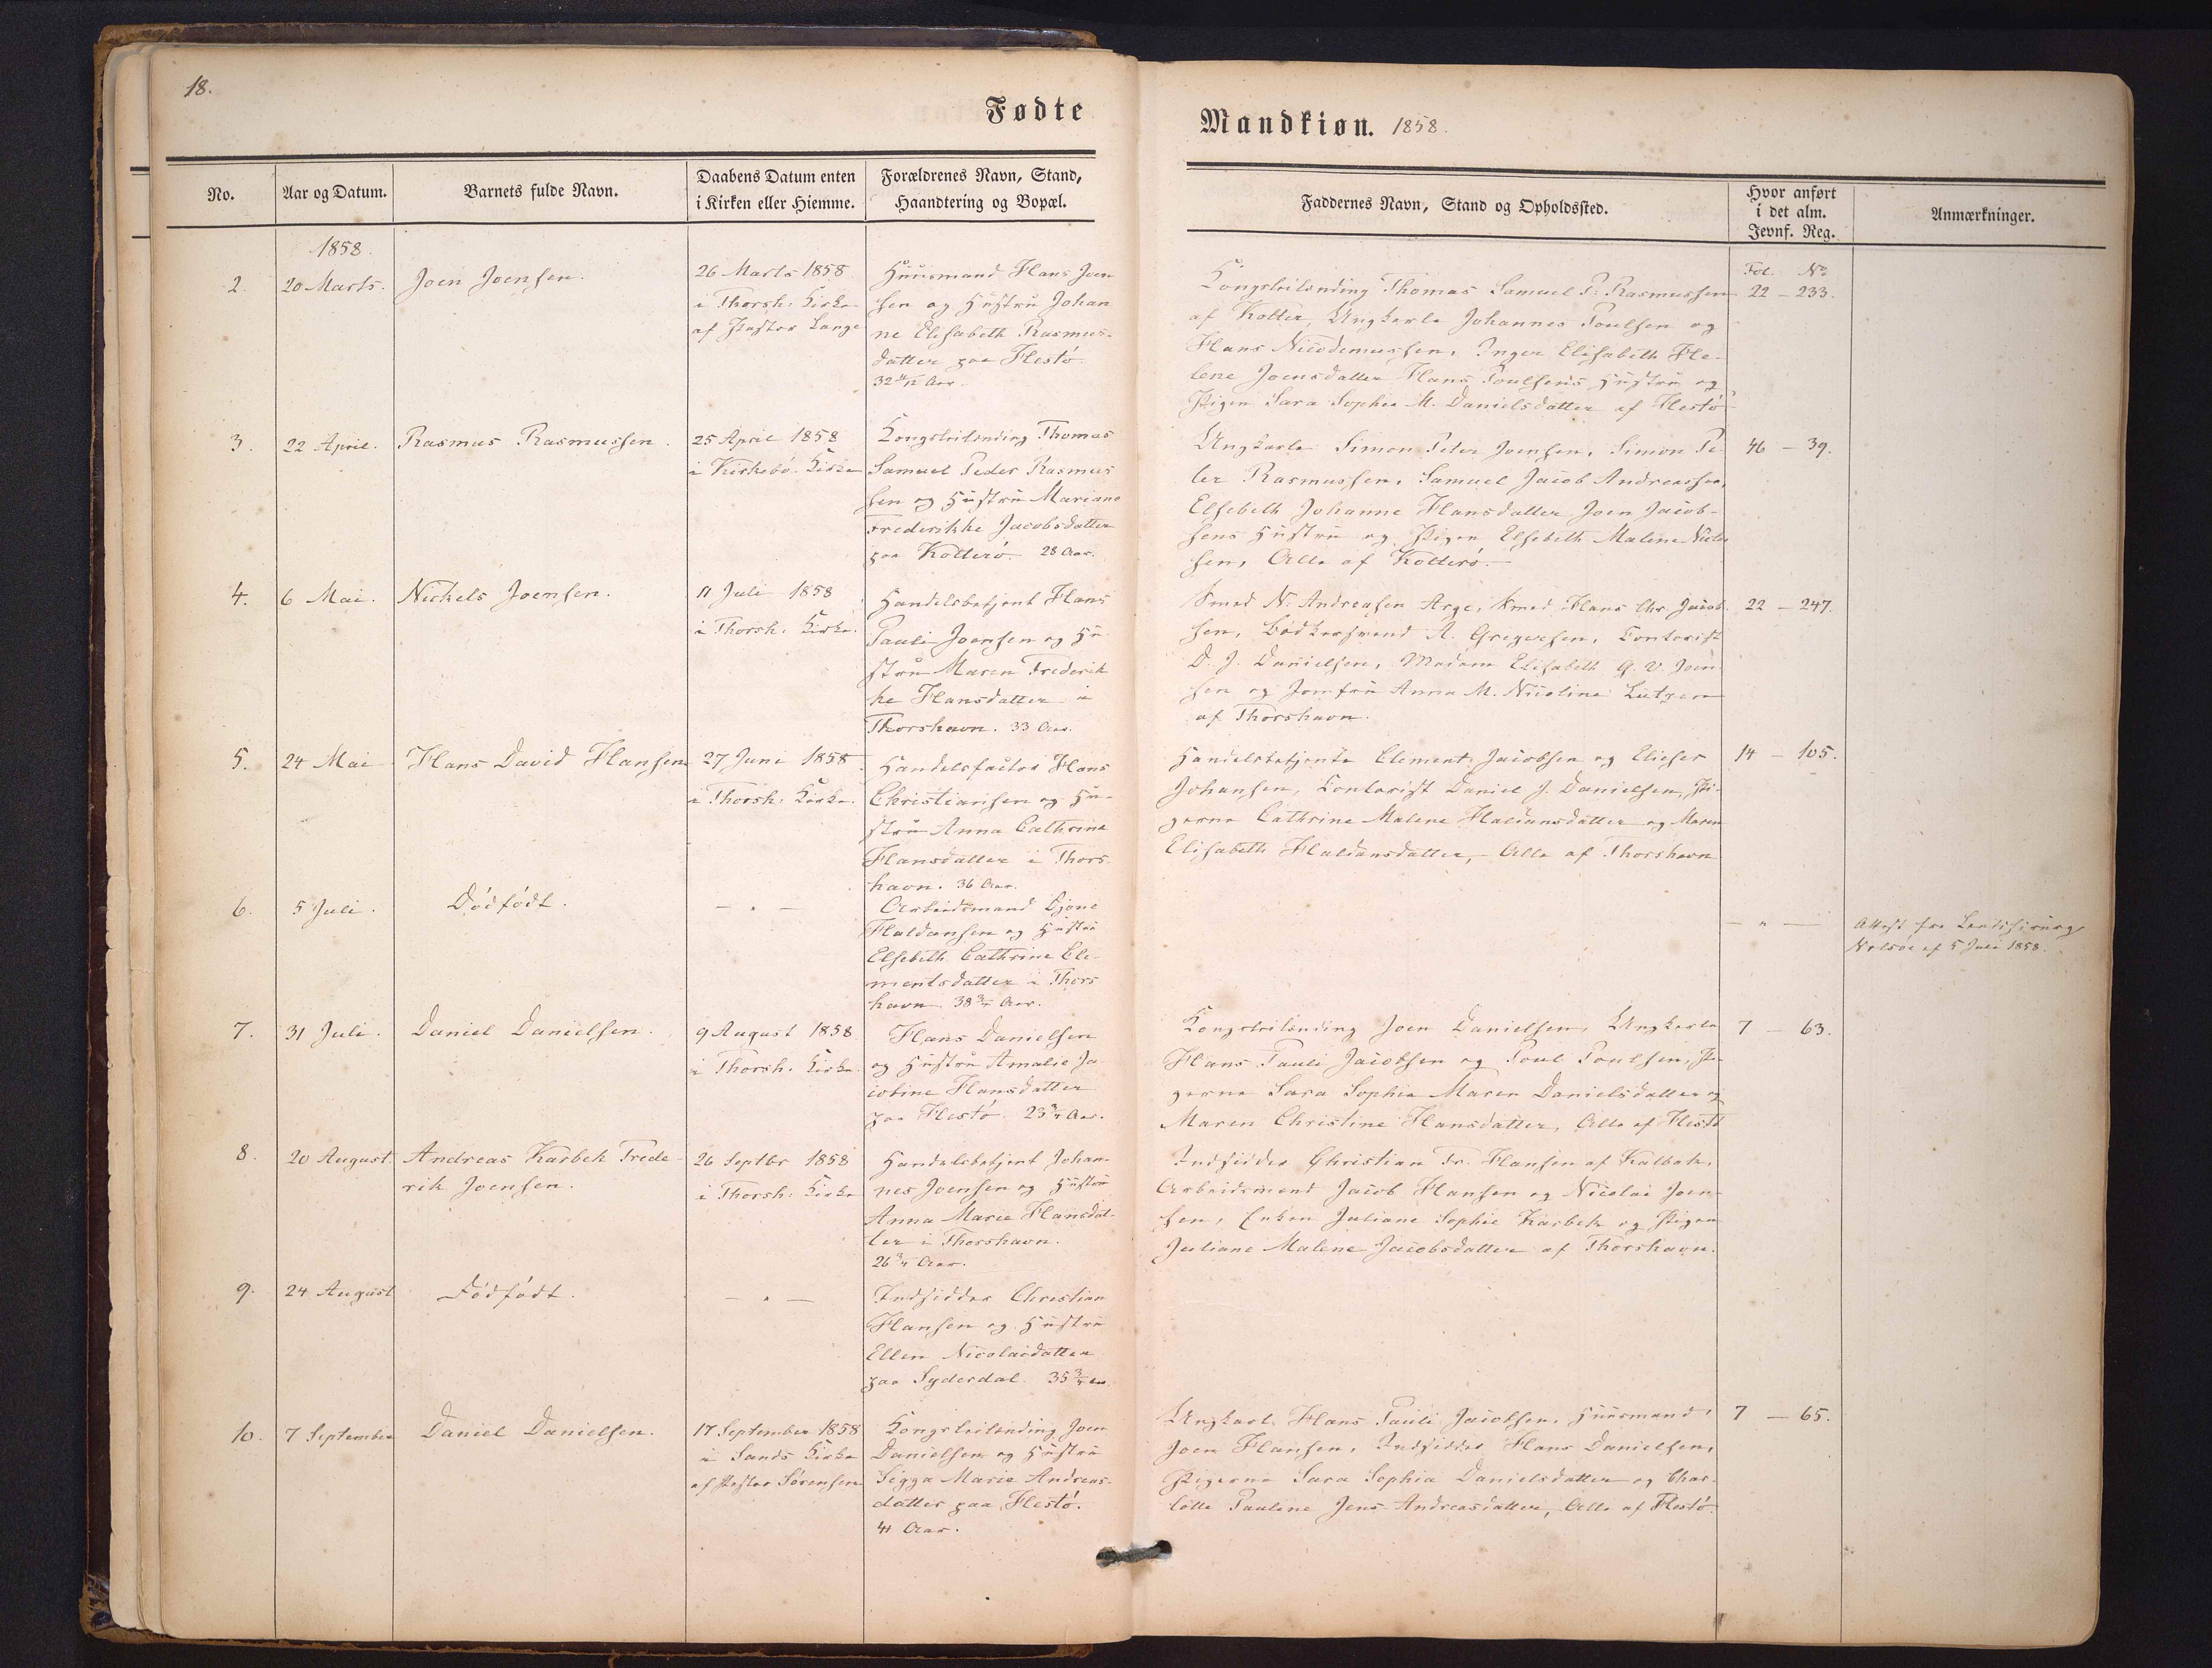 18.
Fødte
Mandkiøn. 1858.
No.
Aar og Datum.
Barnets fulde Navn.
Daabens Datum enten
i Kirken eller Hiemme.
Forældrenes Navn, Stand,
Haandtering og Bopæl.
Faddernes Navn, Stand og Opholdssted.
Hvor anført
i det alm.
Jevnf. Reg.
Anmærkninger.
1858.
2.
20 Marts.
Joen Joensen.
26 Marts 1858
i Thorsh. Kirke
af Pastor Lange
Huusmand Hans Joen
sen og Hustru Johan
ne Elisabeth Rasmus-
datter paa Hestö.
Aar.
Kongsbilænding Thomas Samuel P. Rasmussen
af Kolter, Ungkarle Johannes Poulsen og
Hans Nicodemussen, Inger Elisabeth He-
lene Joensdatter Hans Poulsens Hustru og
Pigen Sara Sophie M. Danielsdatter af Hestö
Fol. No
22 – 233.
3.
22 April.
Rasmus Rasmussen.
25 April 1858
i Kirkebö Kirke
Kongsbilænding Thomas
Samuel Peder Rasmus
sen og Hustru Mariane
Frederikke Jacobsdatter
paa Kolterö. 28 Aar.
Ungkarle Simon Peter Joensen, Simon Pe
ter Rasmussen, Samuel Jacob Andreassen,
Elsebeth Johanne Hansdatter Joen Jacob-
sens Hustru og Pigen Elsebeth Malene
sen, Alle af Kolterö.
46 – 39.
4.
6 Mai.
Nickels Joensen.
11 Juli 1858
i Thorsh. Kirke.
Handelsbetjent Hans
Pauli Joensen og Hu
stru Maren Frederik
ke Hansdatter i
Thorshavn. 33 Aar.
Smed N. Andreasen Arge, Smed Hans Chr. Jacob
sen, Bödkersvend A. Gregersen, Contorist
D. J. Danielsen, Madam Elisabeth G. V. Joen
sen og Jomfru Anna M. Nicoline Lützen
af Thorshavn.
22 – 247.
5.
24 Mai
Hans David Hansen
27 Juni 1858
i Thorsh. Kirke.
Handelsfactor Hans
Christiansen og Hu-
stru Anna Cathrine
Hansdatter i Thors
havn. 36 Aar.
Handelsbetjente Clement Jacobsen og Elieser
Johansen, Contorist Daniel J. Danielsen, Pi-
gerne Cathrine Malene Haldansdatter og Maren
Elisabeth Haldansdatter, Alle af Thorshavn
14 – 105.
6.
5 Juli.
Dödfödt.
— „ —
Arbeidsmand Djone
Haldansen og Hustru
Elsebeth Cathrine Cle-
mentsdatter i Thors
havn 38 3/4 Aar.
— „ —
Attest fra Landchirurg
Nolsöe af 5 Juli 1858.
7.
31 Juli.
Daniel Danielsen.
9 August 1858
i Thorsh. Kirke.
Hans Danielsen
og Hustru Amalie Ja
cobine Hansdatter
paa Hestö. 23 3/4 Aar.
Kongsbilænding Joen Danielsen, Ungkarle
Hans Pauli Jacobsen og Poul Poulsen, Pi-
gerne Sara Sophie Maren Danielsdatter og
Maren Christine Hansdatter, Alle af Hestö
7 – 63.
8.
20 August.
Andreas Karbek Frede-
rik Joensen.
26 Septbr 1858
i Thorsh. Kirke
Handelsbetjent Johan-
nes Joensen og Hustru
Anna Marie Hansdat-
ter i Thorshavn.
26 3/4 Aar.
Indsidder Christian Fr. Hansen af Kalbak,
Arbeidsmand Jacob Hansen og Nicolai Joen-
sen, Enken Juliane Sophie Karbek og Pigen
Juliane Malene Jacobsdatter af Thorshavn.
9.
24 August
Dödfödt.
— „ —
Indsidder Christian
Hansen og Hustru
Ellen Nicolaidatter
paa Syderdal. 35 3/4 Aar
10.
7 September
Daniel Danielsen.
17 September 1858
i Sands Kirke
af Pastor Sörensen
Kongsbilænding Joen
Danielsen og Hustru
Sigga Marie Andreas-
datter paa Hestö.
41 Aar.
Ungkarl Hans Pauli Jacobsen, Huusmand
Joen Hansen, Indsidder Hans Danielsen,
Pigerne Sara Sophia Danielsdatter og Char-
lotte Pauline Jens Andreasdatter, Alle af Hestö.
7 – 65.